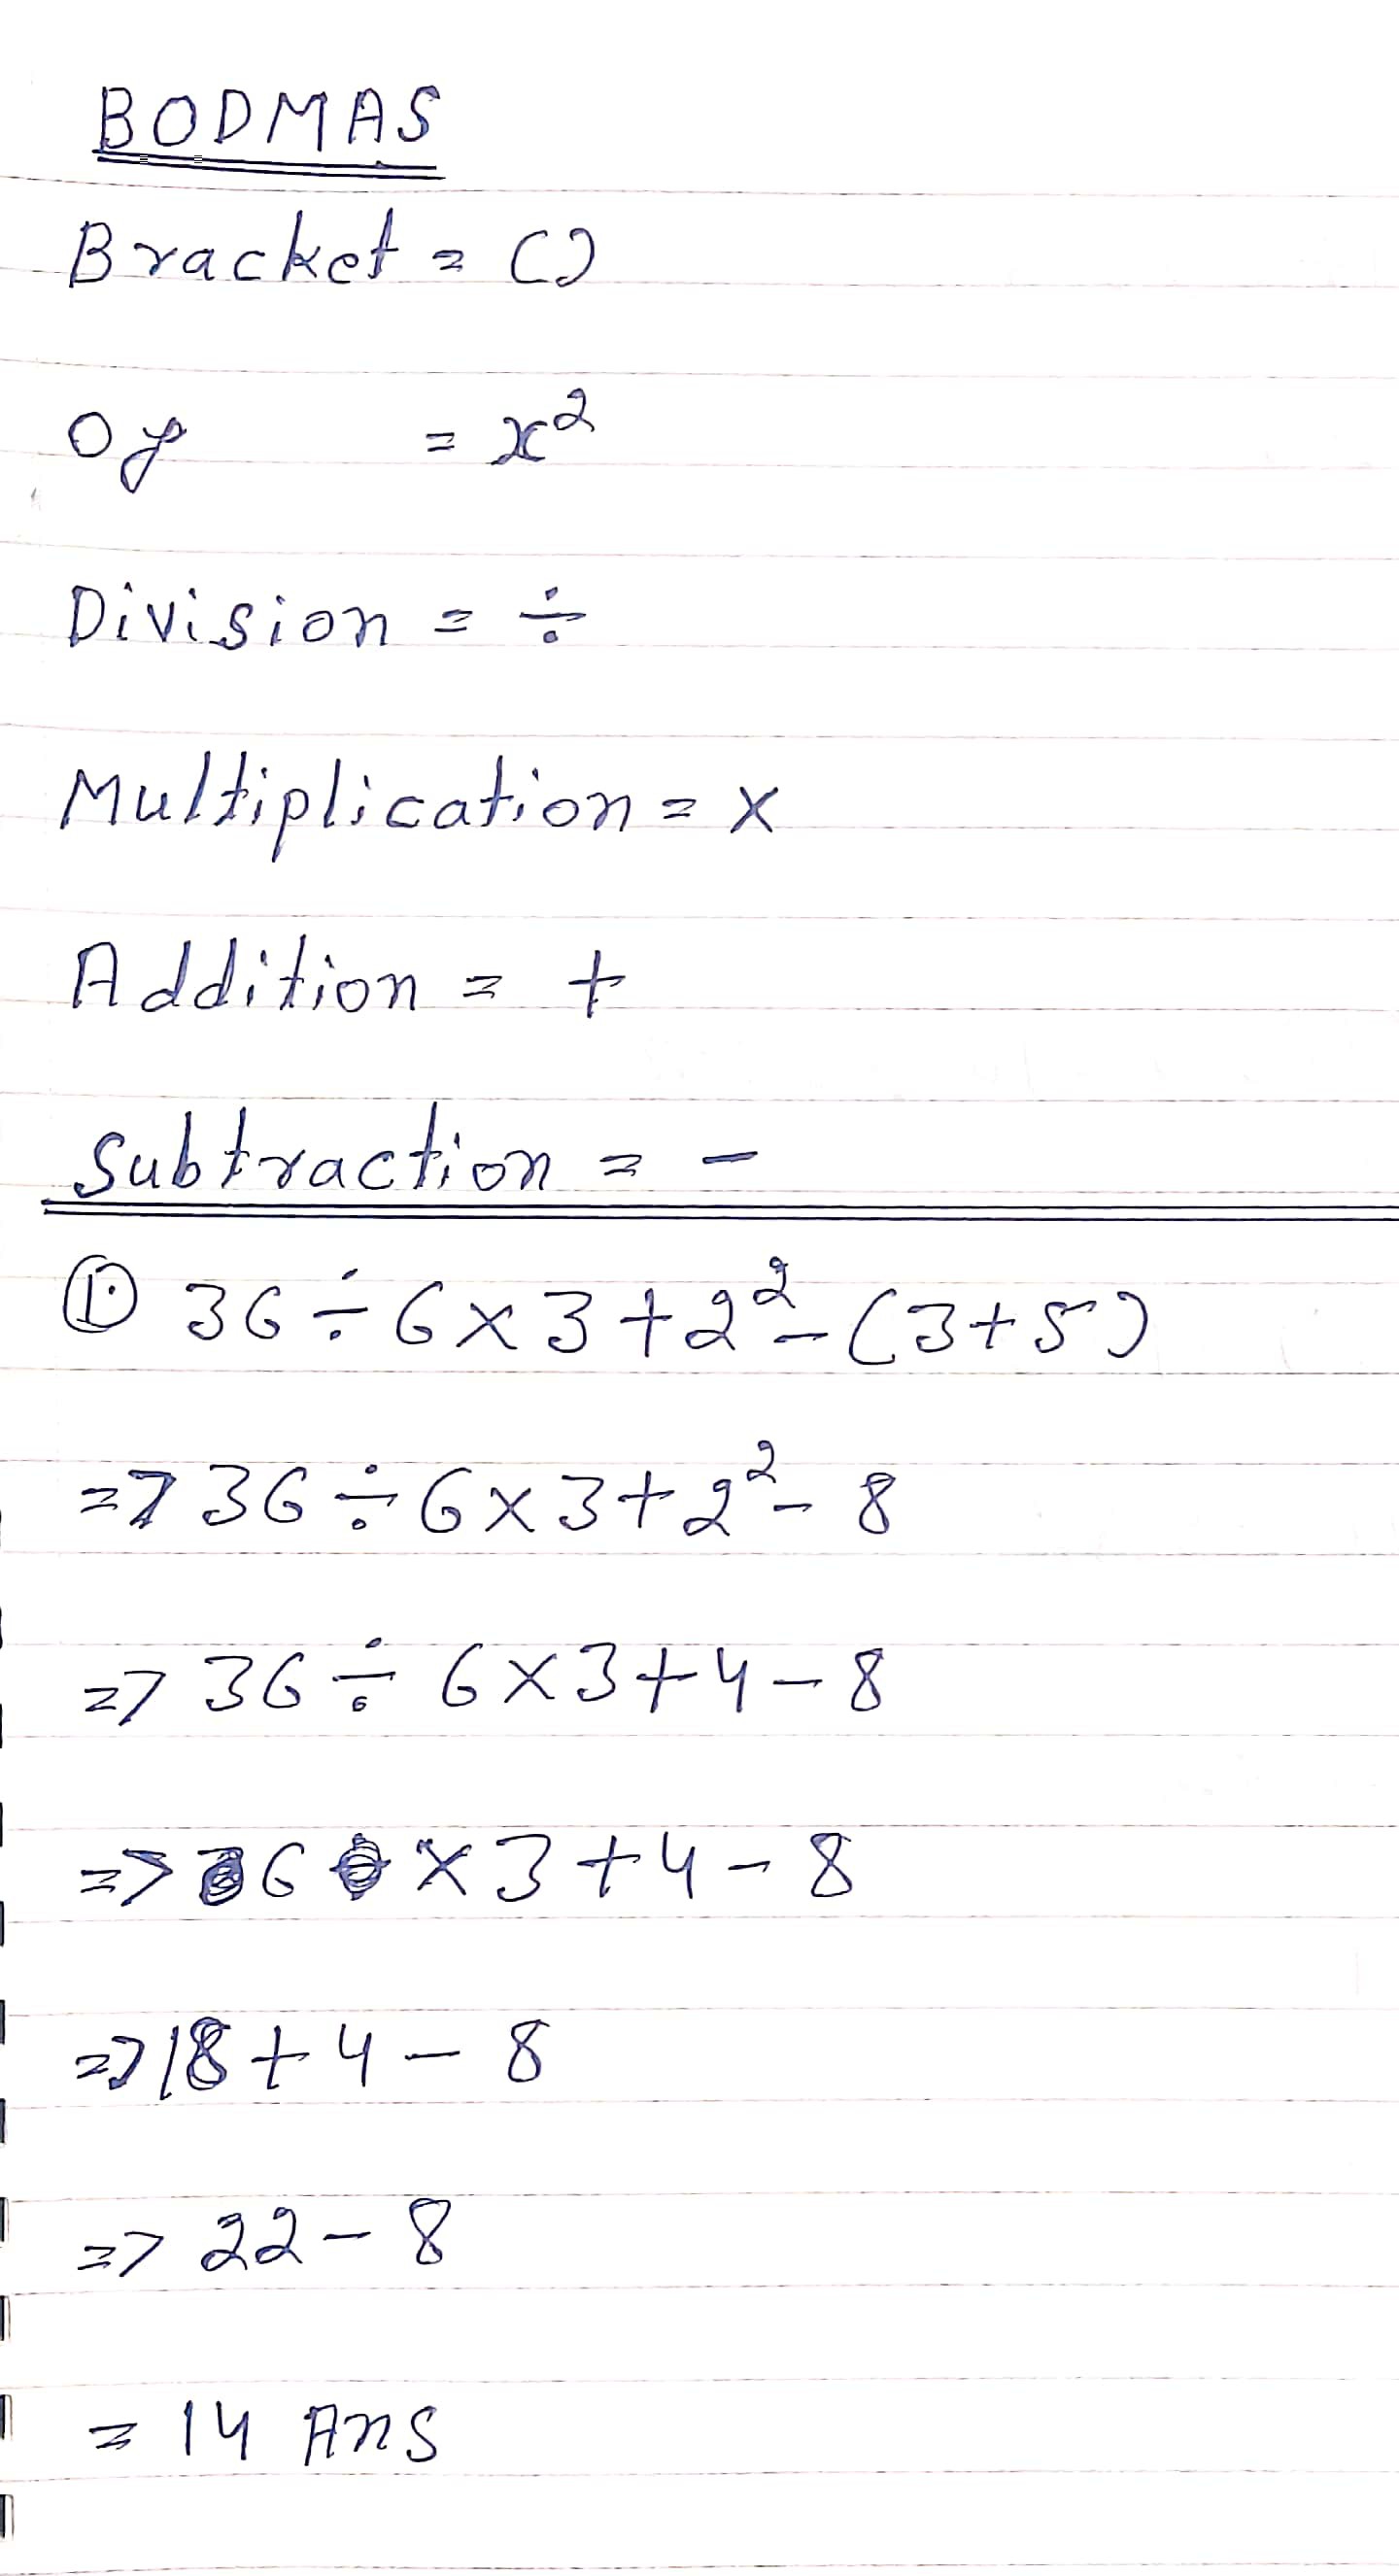 BODMAS
Bracket = ()
Of = x²
Division = ÷
Multiplication = ×
Addition = +
Subtraction = -
① 36 ÷ 6 × 3 + 2² - (3+5)
=> 36 ÷ 6 × 3 + 2² - 8
=> 36 ÷ 6 × 3 + 4 - 8
=> 6 × 3 + 4 - 8
=> 18 + 4 - 8
=> 22 - 8
= 14 Ans